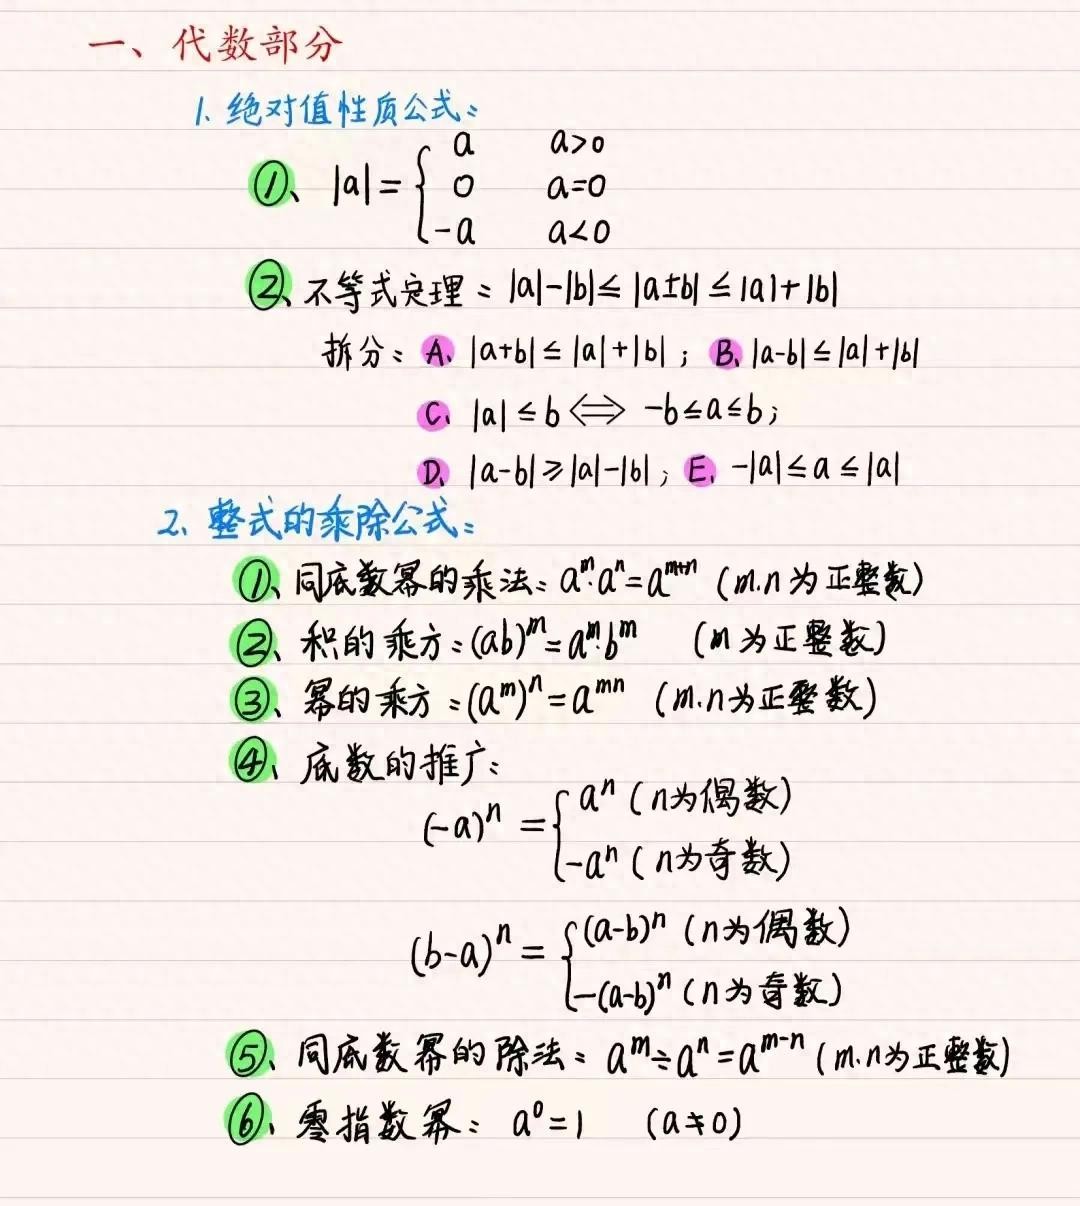 一、代数部分
1. 绝对值性质公式:
①、|a|={ a a>0
0 a=0
-a a<0
②、不等式定理:|a|-|b|≤|a±b|≤|a|+|b|
拆分:A、|a+b|≤|a|+|b|;B、|a-b|≤|a|+|b|
C、|a|≤b⟺-b≤a≤b;
D、|a-b|≥|a|-|b|;E、-|a|≤a≤|a|
2、整式的乘除公式:
①、同底数幂的乘法:aᵐ·aⁿ=aᵐ⁺ⁿ(m.n为正整数)
②、积的乘方:(ab)ᵐ=aᵐ·bᵐ (m为正整数)
③、幂的乘方:(aᵐ)ⁿ=aᵐⁿ(m.n为正整数)
④、底数的推广:
(-a)ⁿ={ aⁿ(n为偶数)
-aⁿ(n为奇数)
(b-a)ⁿ={ (a-b)ⁿ(n为偶数)
-(a-b)ⁿ(n为奇数)
⑤、同底数幂的除法:aᵐ÷aⁿ=aᵐ⁻ⁿ(m.n为正整数)
⑥、零指数幂:a⁰=1 (a≠0)